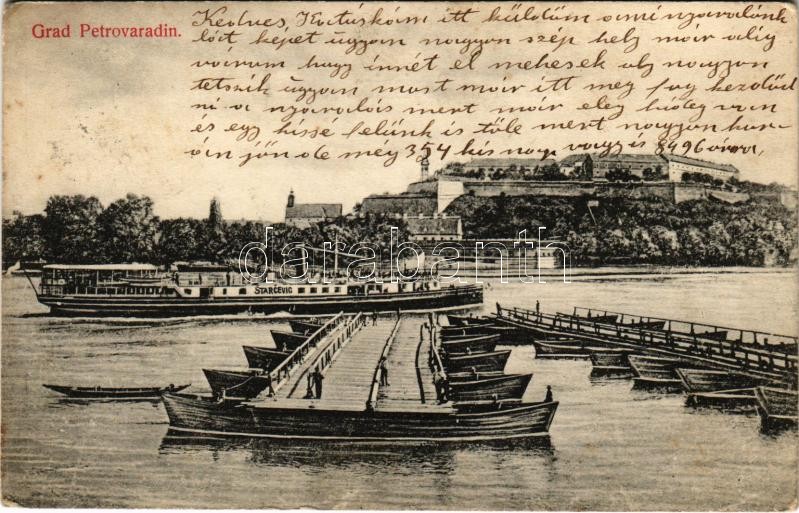 Grad Petrovaradin.
Kedves itt küldöm a mi nyaralónk
képet ugyan nagyon szép hely már alig
várom hogy innét el mehesek oly nagyon
tetszik ugyan most már itt meg fog kezdőd
ni a nyaralás mert már elég hideg van
és egy kissé félünk is tőle mert nagyon kor
án jön de még 354 kis nap vagy is 8496 óra,
STARČEVIĆ
darabanth